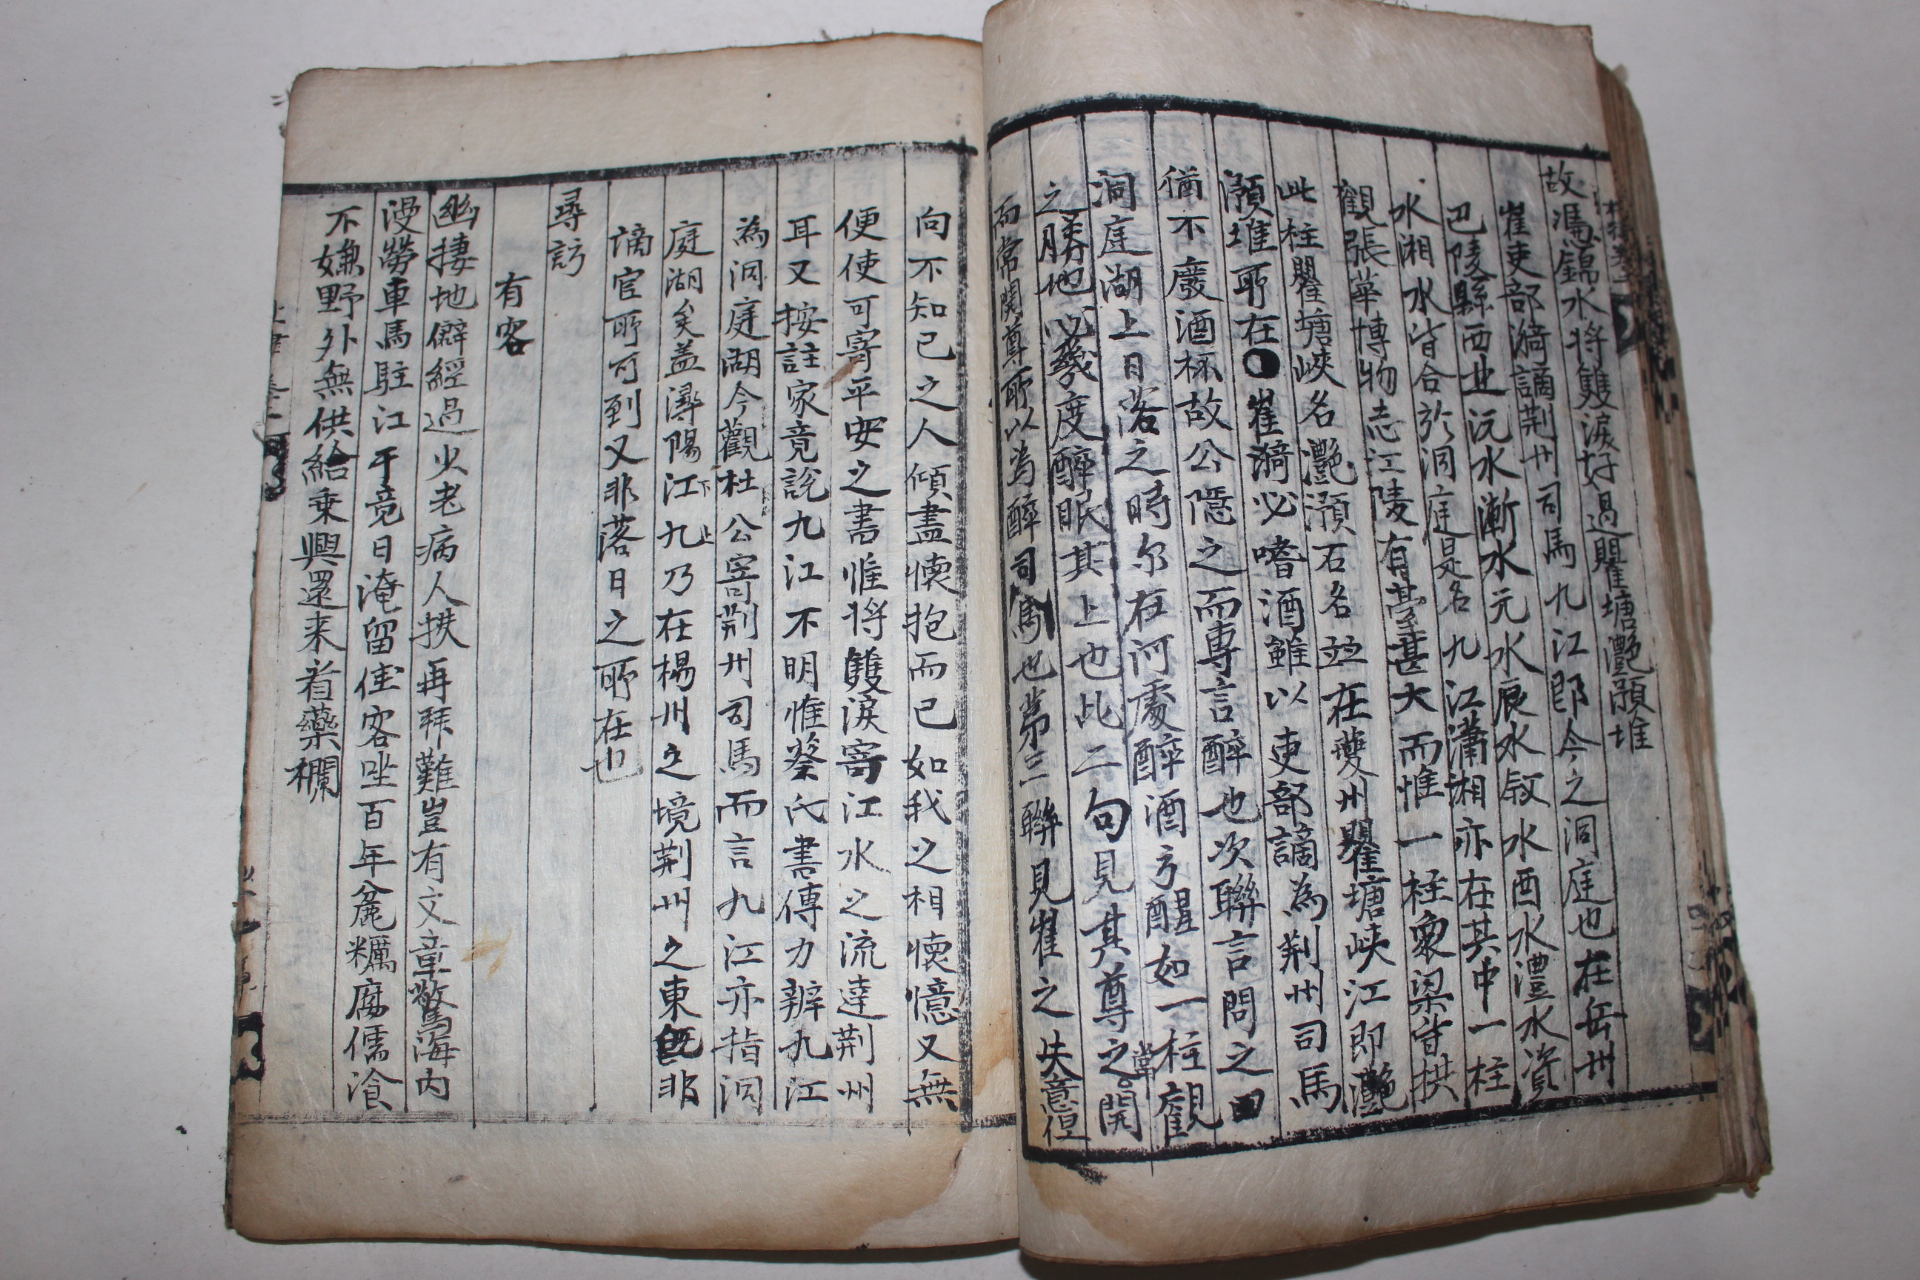 故馮錦水将雙淚好過瞿塘灩澦堆
崔吏部漪謫荊州司馬九江郎今之洞庭也在岳州
巴陵縣西北沅水漸水元水辰水叙水酉水澧水資
水湘水皆合於洞庭是名九江瀟湘亦在其中一柱
觀張華博物志江陵有䑓甚大而惟一柱衆梁皆拱
此柱瞿塘峽名灩澦石名並在夔州瞿塘峽江即灩
澦堆所在崔漪必嗜酒雖以吏部謫為荊州司馬
猶不廢酒杯故公隱之而專言醉也次聯言問之曰
洞庭湖上日落之時尔在何處醉酒方醒如一柱觀
之勝地必幾度醉眠其上也此二句見其尊之常開
而常開尊所以為醉司馬也第三聯見崔之失意但
向不知已之人傾盡懷抱而已如我之相懷憶又無
便使可寄平安之書惟将雙淚寄江水之流達荊州
耳又按註家竟說九江不明惟蔡氏書傳力辨九江
為洞庭湖今觀杜公寄荊州司馬而言九江亦指洞
庭湖矣盖潯陽江九乃在楊州之境荊州之東既非
謫官所可到又非落日之所在也
尋訪
有客
幽捿地僻經過少老病人扶再拜難豈有文章驚海內
漫勞車馬駐江干竟日淹留佳客坐百年麁糲腐儒湌
不嫌野外無供給乗興還来看藥欄